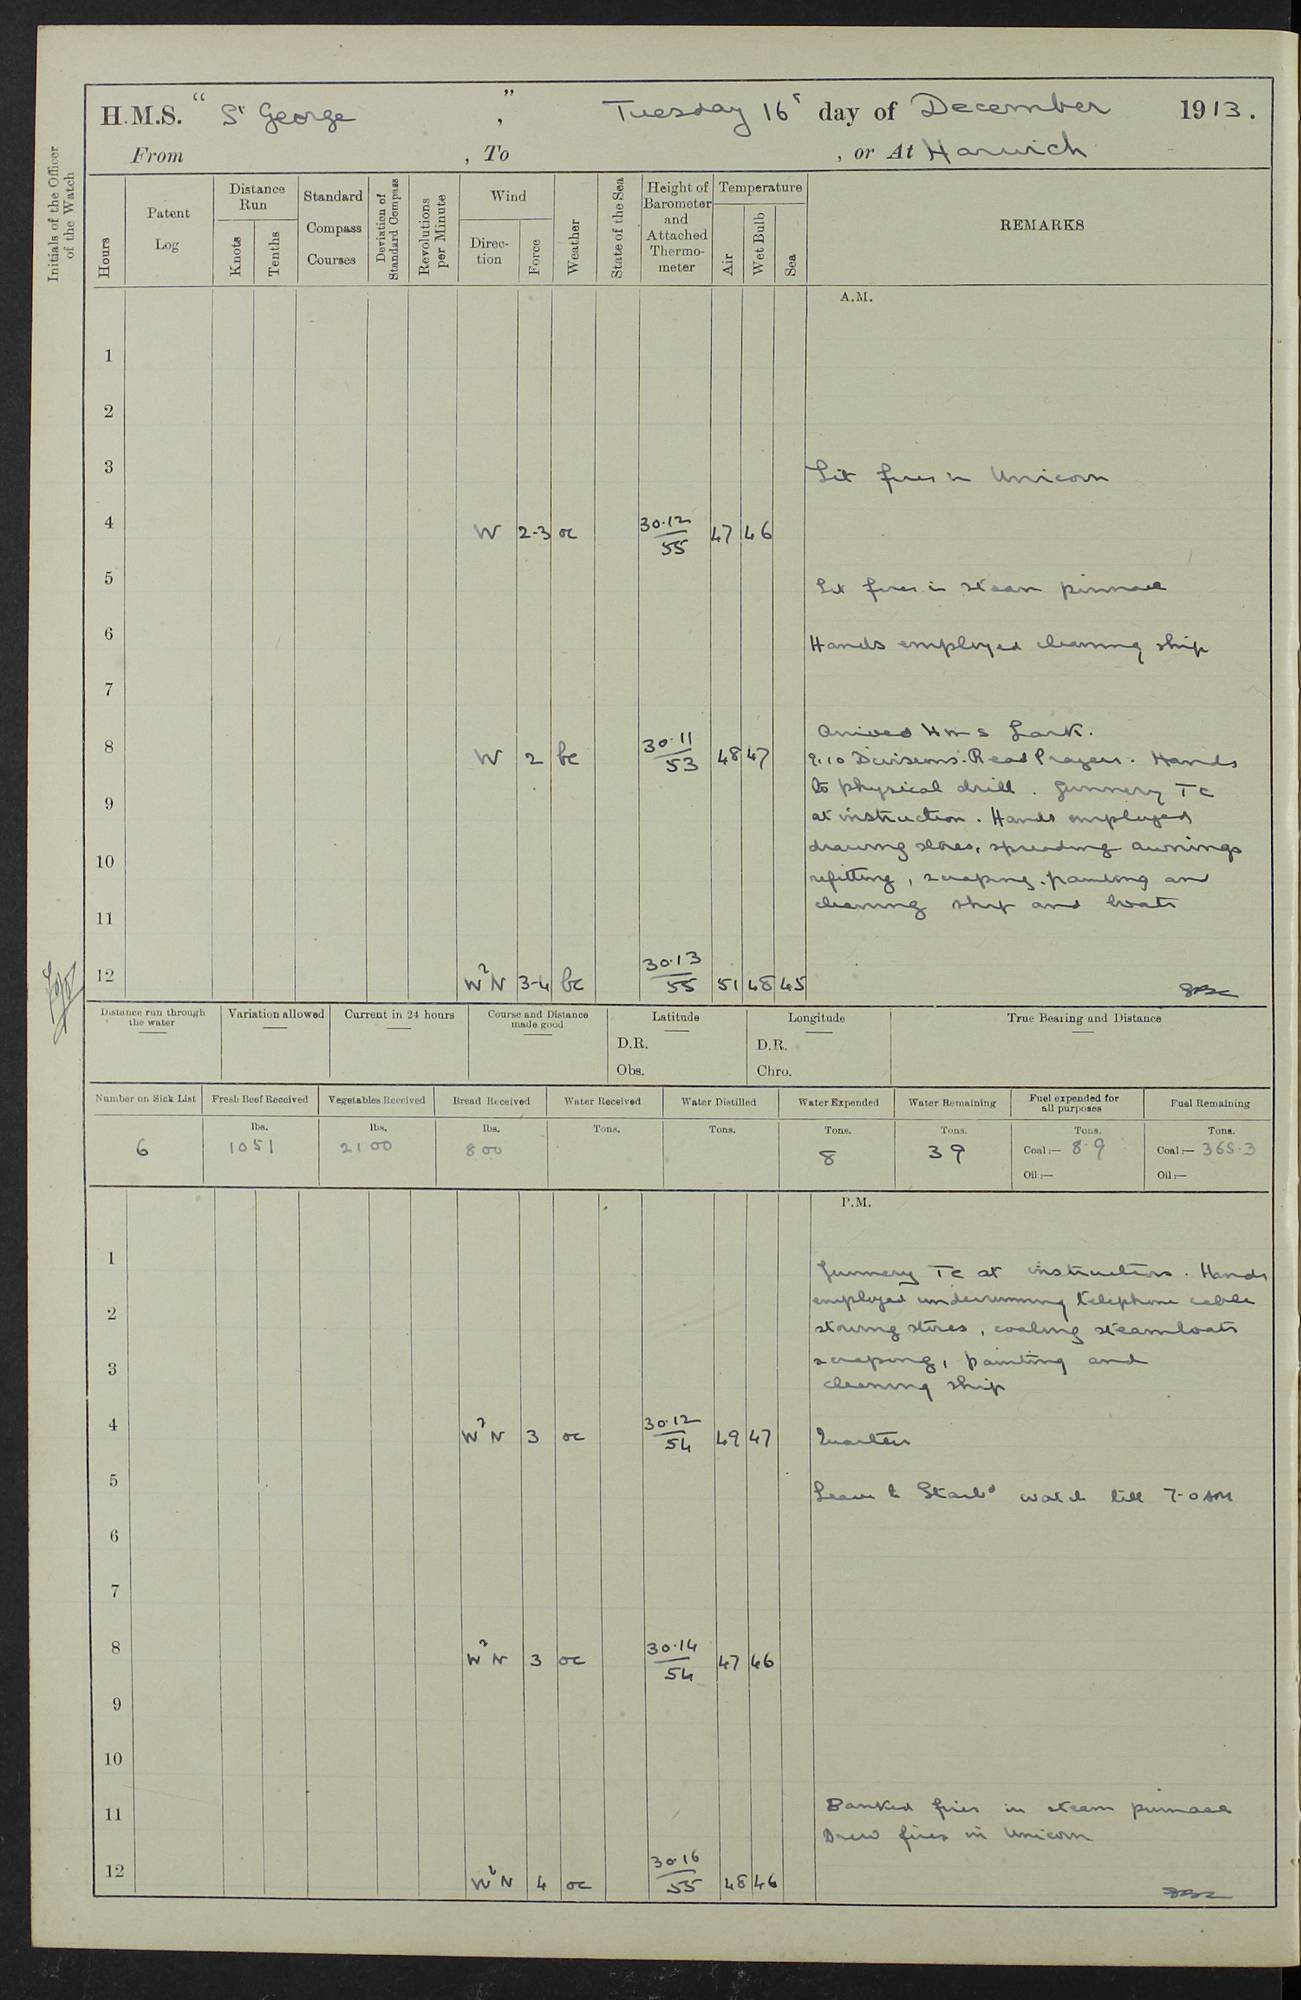 H.M.S. "St George", Tuesday 16th day of December 1913.
From , To , or At Harwich
Initials of the Officer of the Watch
Hours
Patent Log
Distance Run
Knots
Tenths
Standard Compass Courses
Deviation of Standard Compass
Revolutions per Minute
Wind
Direction
Force
Weather
State of the Sea
Height of Barometer and Attached Thermometer
Temperature
Air
Wet Bulb
Sea
REMARKS
A.M.
1
2
3 Lit fires in Unicorn
4 W 2-3 oc 30.12/55 47 46
5 Lit fires in steam pinnace
6 Hands employed cleaning ship
7
Arrived HMS Lark.
8 W 2 bc 30.11/53 48 47 9.10 Divisions. Read Prayers. Hands
to physical drill. Gunnery TC
9 at instruction. Hands employed
drawing stores, spreading awnings
10 refitting, scraping, painting and
cleaning ship and boats
11
12 WbN 3-4 bc 30.13/55 51 48 45
Distance run through the water
Variation allowed
Current in 24 hours
Course and Distance made good
Latitude
D.R.
Obs.
Longitude
D.R.
Chro.
True Bearing and Distance
Number on Sick List
6
Fresh Beef Received
lbs.
1051
Vegetables Received
lbs.
2100
Bread Received
lbs.
800
Water Received
Tons.
Water Distilled
Tons.
Water Expended
Tons.
8
Water Remaining
Tons.
39
Fuel expended for all purposes
Tons.
Coal:— 8.9
Oil:—
Fuel Remaining
Tons.
Coal:— 368.3
Oil:—
P.M.
1 Gunnery TC at instruction. Hands
employed underrunning telephone cable
2 stowing stores, coaling steamboats
3 scraping, painting and
cleaning ship
4 WbN 3 oc 30.12/54 49 47 Quarters
5 Leave to Starbd watch till 7-0 AM
6
7
8 WbN 3 oc 30.14/54 47 46
9
10
11 Banked fires in steam pinnace
Drew fires in Unicorn
12 WbN 4 oc 30.16/55 48 46